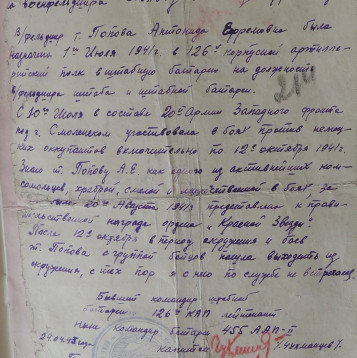 в/фельдшер т. Попова Антонида Ефремовна была
назначена 1го Июля 1941г. в 126й корпусной артилле-
рийский полк в штабную батарею на должность
в/фельдшера штаба и штабной батареи.
214
С 10го Июля в составе 20й Армии Западного фронта
под г. Смоленском участвовала в боях против немец-
ких оккупантов включительно по 12е октября 1941г.
Знаю т. Попову А.Е. как одного из активнейших ком-
сомольцев, храброй, смелой и мужественной в боях за
что 20го Августа 1941г. представлялся к прави-
тельственной награде ордена „Красной Звезды".
После 12го октября в период окружения и боев
т. Попова с группой бойцов пошла выходить из
окружения, с тех пор я с нею по службе не встречался.
Бывший командир штабной
батареи 126го КАП лейтенант
ныне командир батареи 455 ААП-II
капитан
24.04.45 года